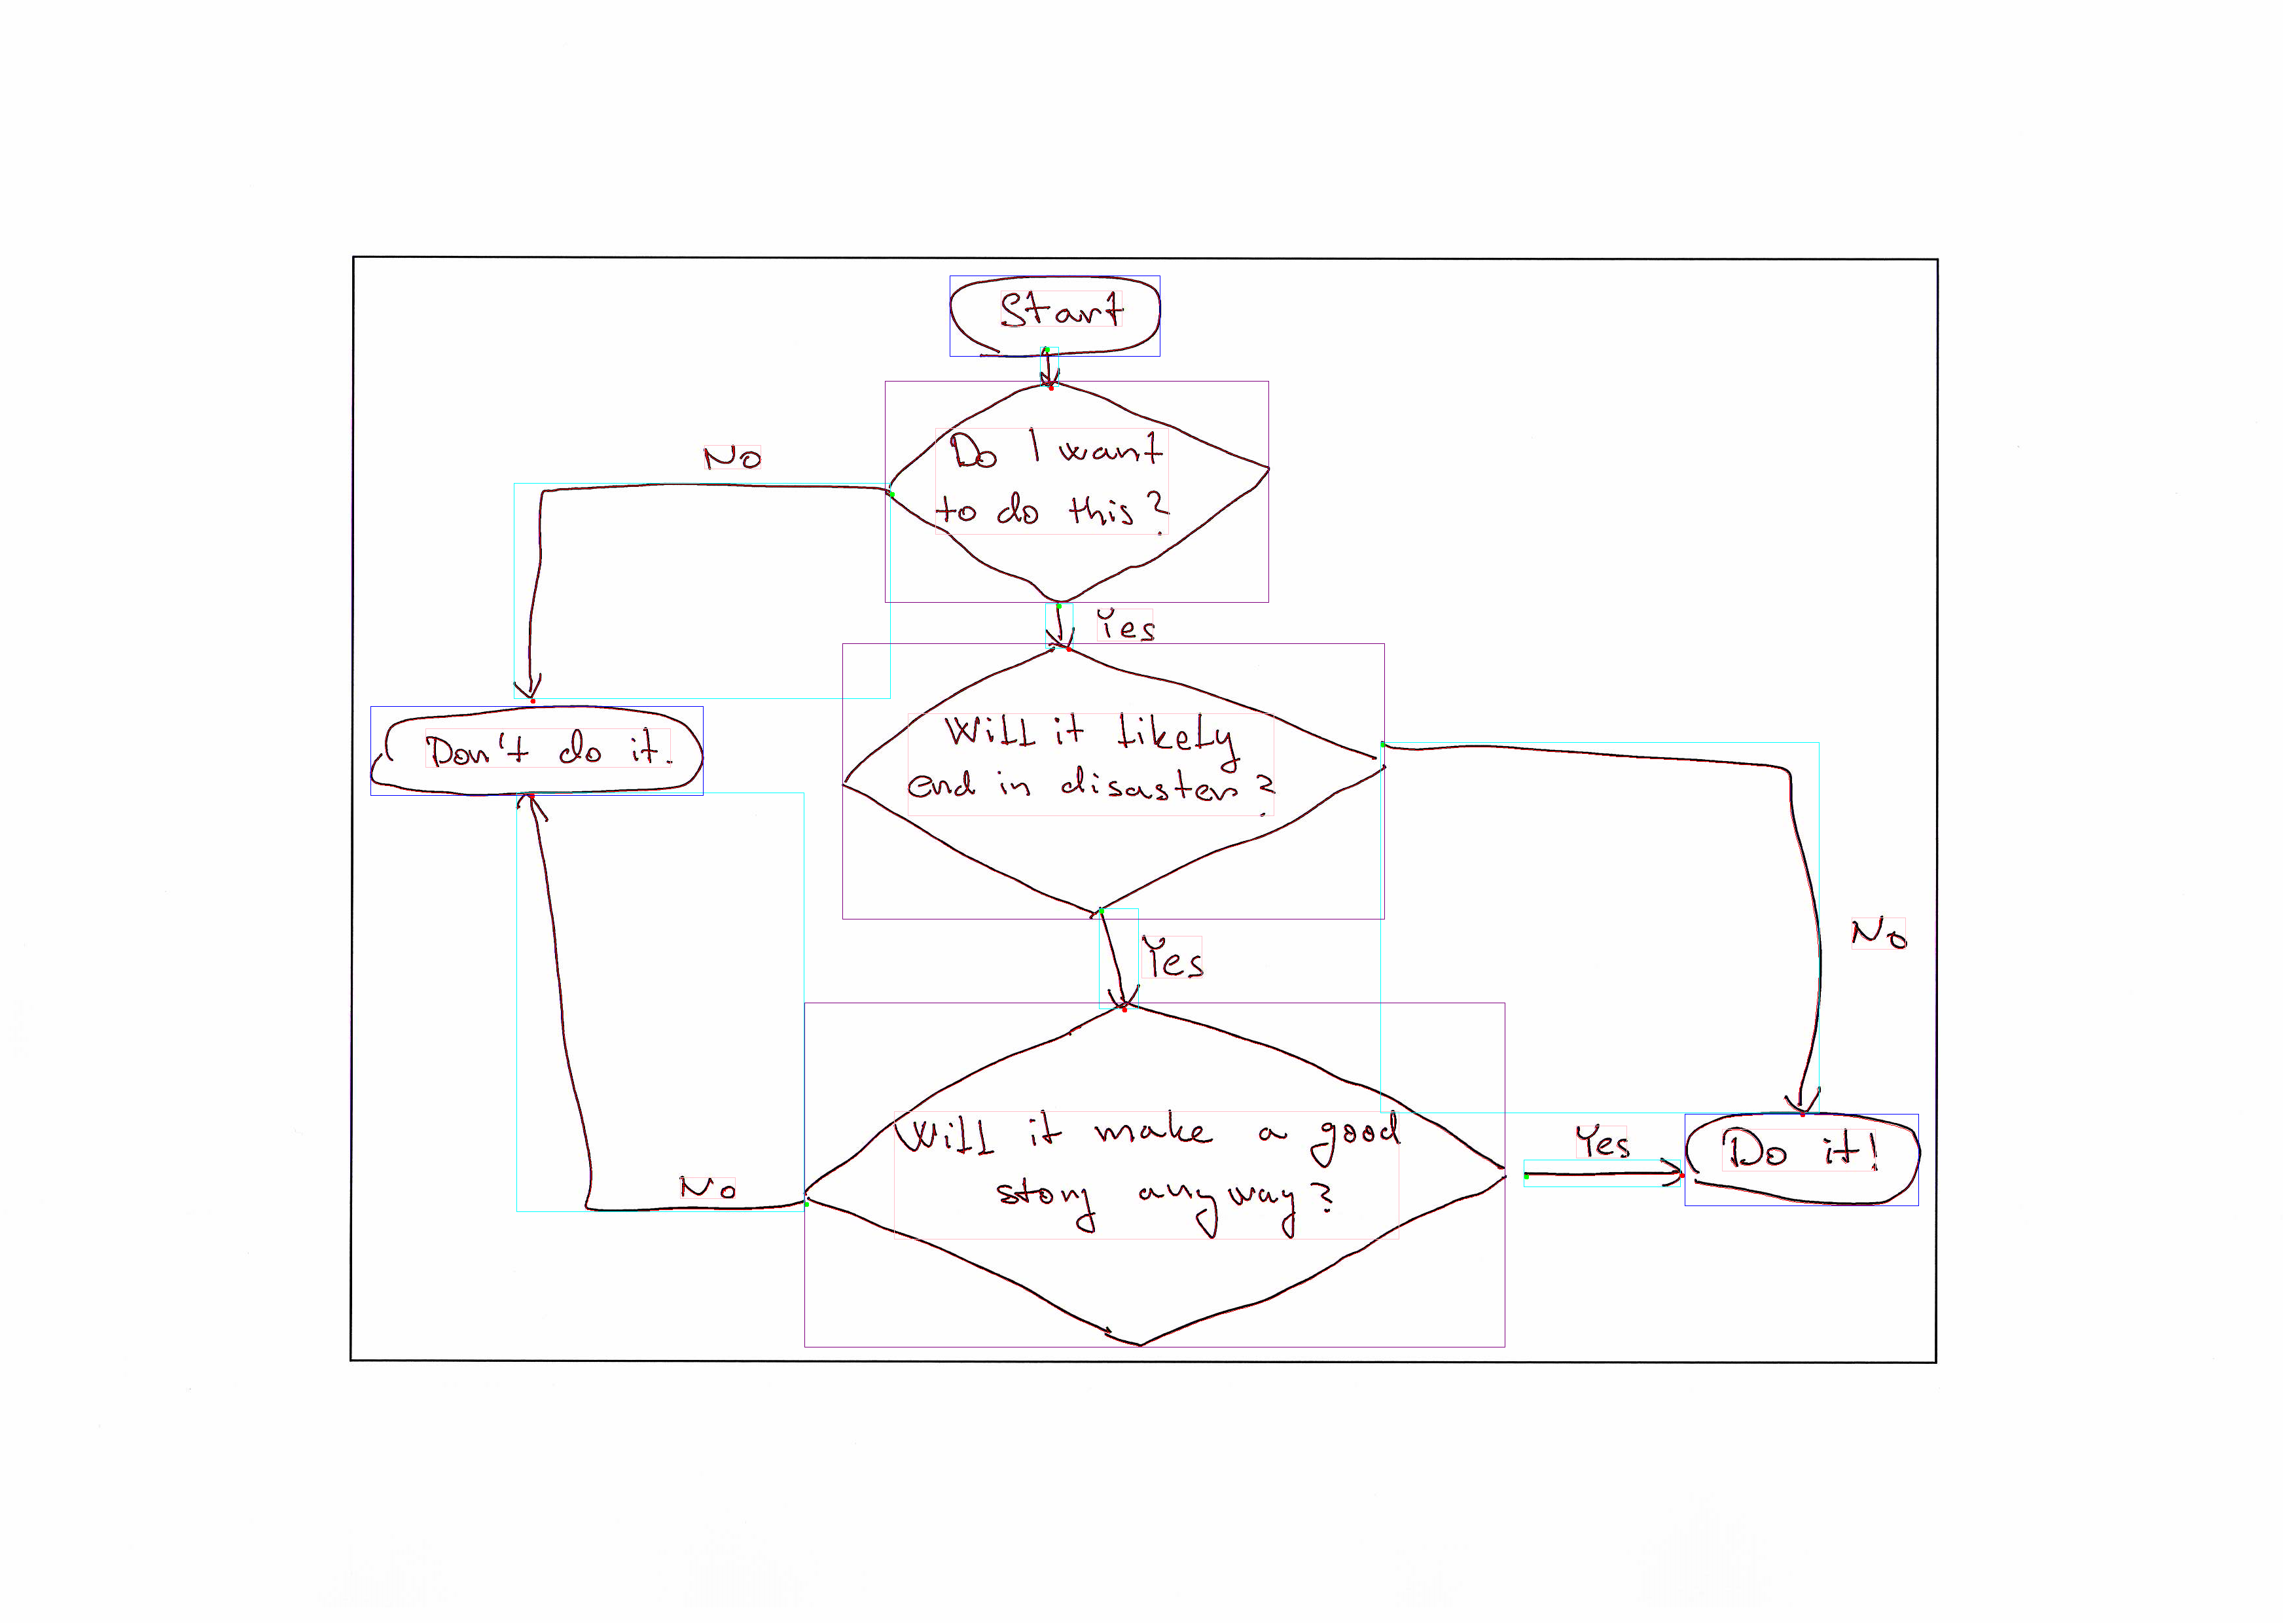 Start
Do I want
to do this?
No
Yes
Will it likely
end in disaster?
Don't do it.
No
Yes
Will it make a good
story anyway?
No
Yes
Do it!